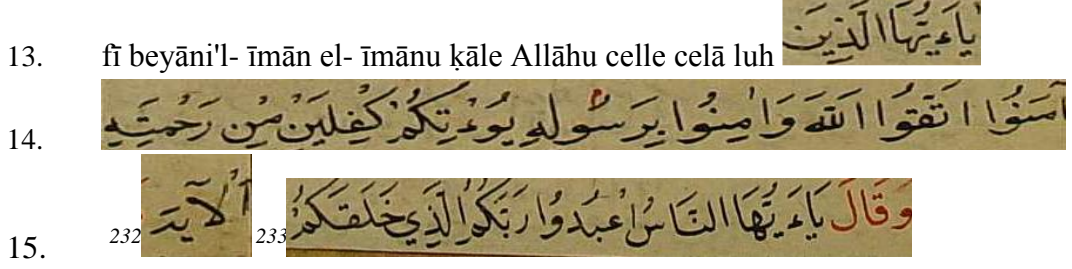 13. fī beyāni'l- īmān el- īmānu ḳāle Allāhu celle celā luh يَاءَيُّهَا الَّذِينَ
14. آمَنُوا اتَّقُوا اللّٰهَ وَاٰمِنُوا بِرَسُولِهِ يُوءْتِكُمْ كِفْلَيْنِ مِنْ رَحْمَتِهِ
15. 232 اَلْآيَة 233 وَقَالَ يَاءَيُّهَا النَّاسُ اعْبُدُوا رَبَّكُمُ الَّذِي خَلَقَكُمْ